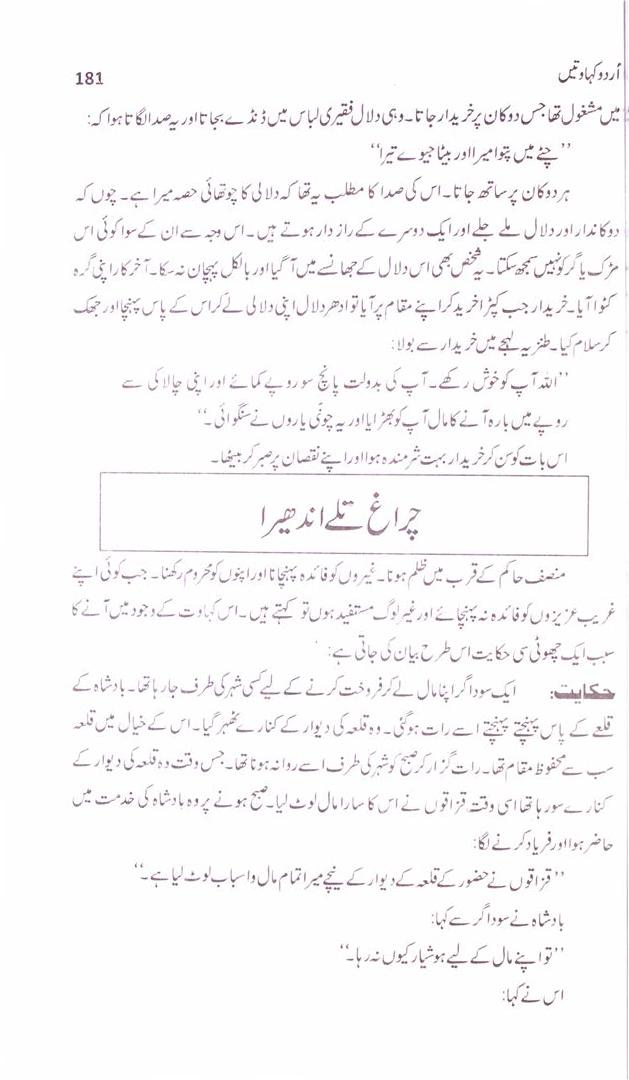 اُردو کہاوتیں 181
میں مشغول تھا جس دوکان پر خریدار جاتا۔ وہی دلال فقیری لباس میں ڈنڈے بجاتا اور یہ صدا لگاتا ہوا کہ:
’’چٹے میں پتوا میرا اور بیٹا جیوے تیرا‘‘
ہر دوکان پر ساتھ جاتا۔ اس کی صدا کا مطلب یہ تھا کہ دلالی کا چوتھائی حصہ میرا ہے۔ چوں کہ
دوکاندار اور دلال ملے جلے اور ایک دوسرے کے راز دار ہوتے ہیں۔ اس وجہ سے ان کے سوا کوئی اس
مڑک یا گر کو نہیں سمجھ سکتا۔ یہ شخص بھی اس دلال کے جھانسے میں آ گیا اور بالکل پہچان نہ سکا۔ آخر کار اپنی گرہ
کٹوا آیا۔ خریدار جب کپڑا خرید کر اپنے مقام پر آیا تو ادھر دلال اپنی دلالی لے کر اس کے پاس پہنچا اور جھک
کر سلام کیا۔ طنزیہ لہجے میں خریدار سے بولا:
’’اللہ آپ کو خوش رکھے۔ آپ کی بدولت پانچ سو روپے کمائے اور اپنی چالاکی سے
روپے میں بارہ آنے کا مال آپ کو بھڑایا اور یہ چونّی یاروں نے سنگوائی۔‘‘
اس بات کو سن کر خریدار بہت شرمندہ ہوا اور اپنے نقصان پر صبر کر بیٹھا۔
چراغ تلے اندھیرا
منصف حاکم کے قرب میں ظلم ہونا۔ غیروں کو فائدہ پہنچانا اور اپنوں کو محروم رکھنا۔ جب کوئی اپنے
غریب عزیزوں کو فائدہ نہ پہنچائے اور غیر لوگ مستفید ہوں تو کہتے ہیں۔ اس کہاوت کے وجود میں آنے کا
سبب ایک چھوٹی سی حکایت اس طرح بیان کی جاتی ہے:
حکایت: ایک سوداگر اپنا مال لے کر فروخت کرنے کے لیے کسی شہر کی طرف جا رہا تھا۔ بادشاہ کے
قلعے کے پاس پہنچتے پہنچتے اسے رات ہو گئی۔ وہ قلعہ کی دیوار کے کنارے ٹھہر گیا۔ اس کے خیال میں قلعہ
سب سے محفوظ مقام تھا۔ رات گزار کر صبح کو شہر کی طرف اسے روانہ ہونا تھا۔ جس وقت وہ قلعہ کی دیوار کے
کنارے سو رہا تھا اسی وقت قزاقوں نے اس کا سارا مال لوٹ لیا۔ صبح ہونے پر وہ بادشاہ کی خدمت میں
حاضر ہوا اور فریاد کرنے لگا:
’’قزاقوں نے حضور کے قلعہ کے دیوار کے نیچے میرا تمام مال و اسباب لوٹ لیا ہے۔‘‘
بادشاہ نے سوداگر سے کہا:
’’تو اپنے مال کے لیے ہوشیار کیوں نہ رہا۔‘‘
اس نے کہا: